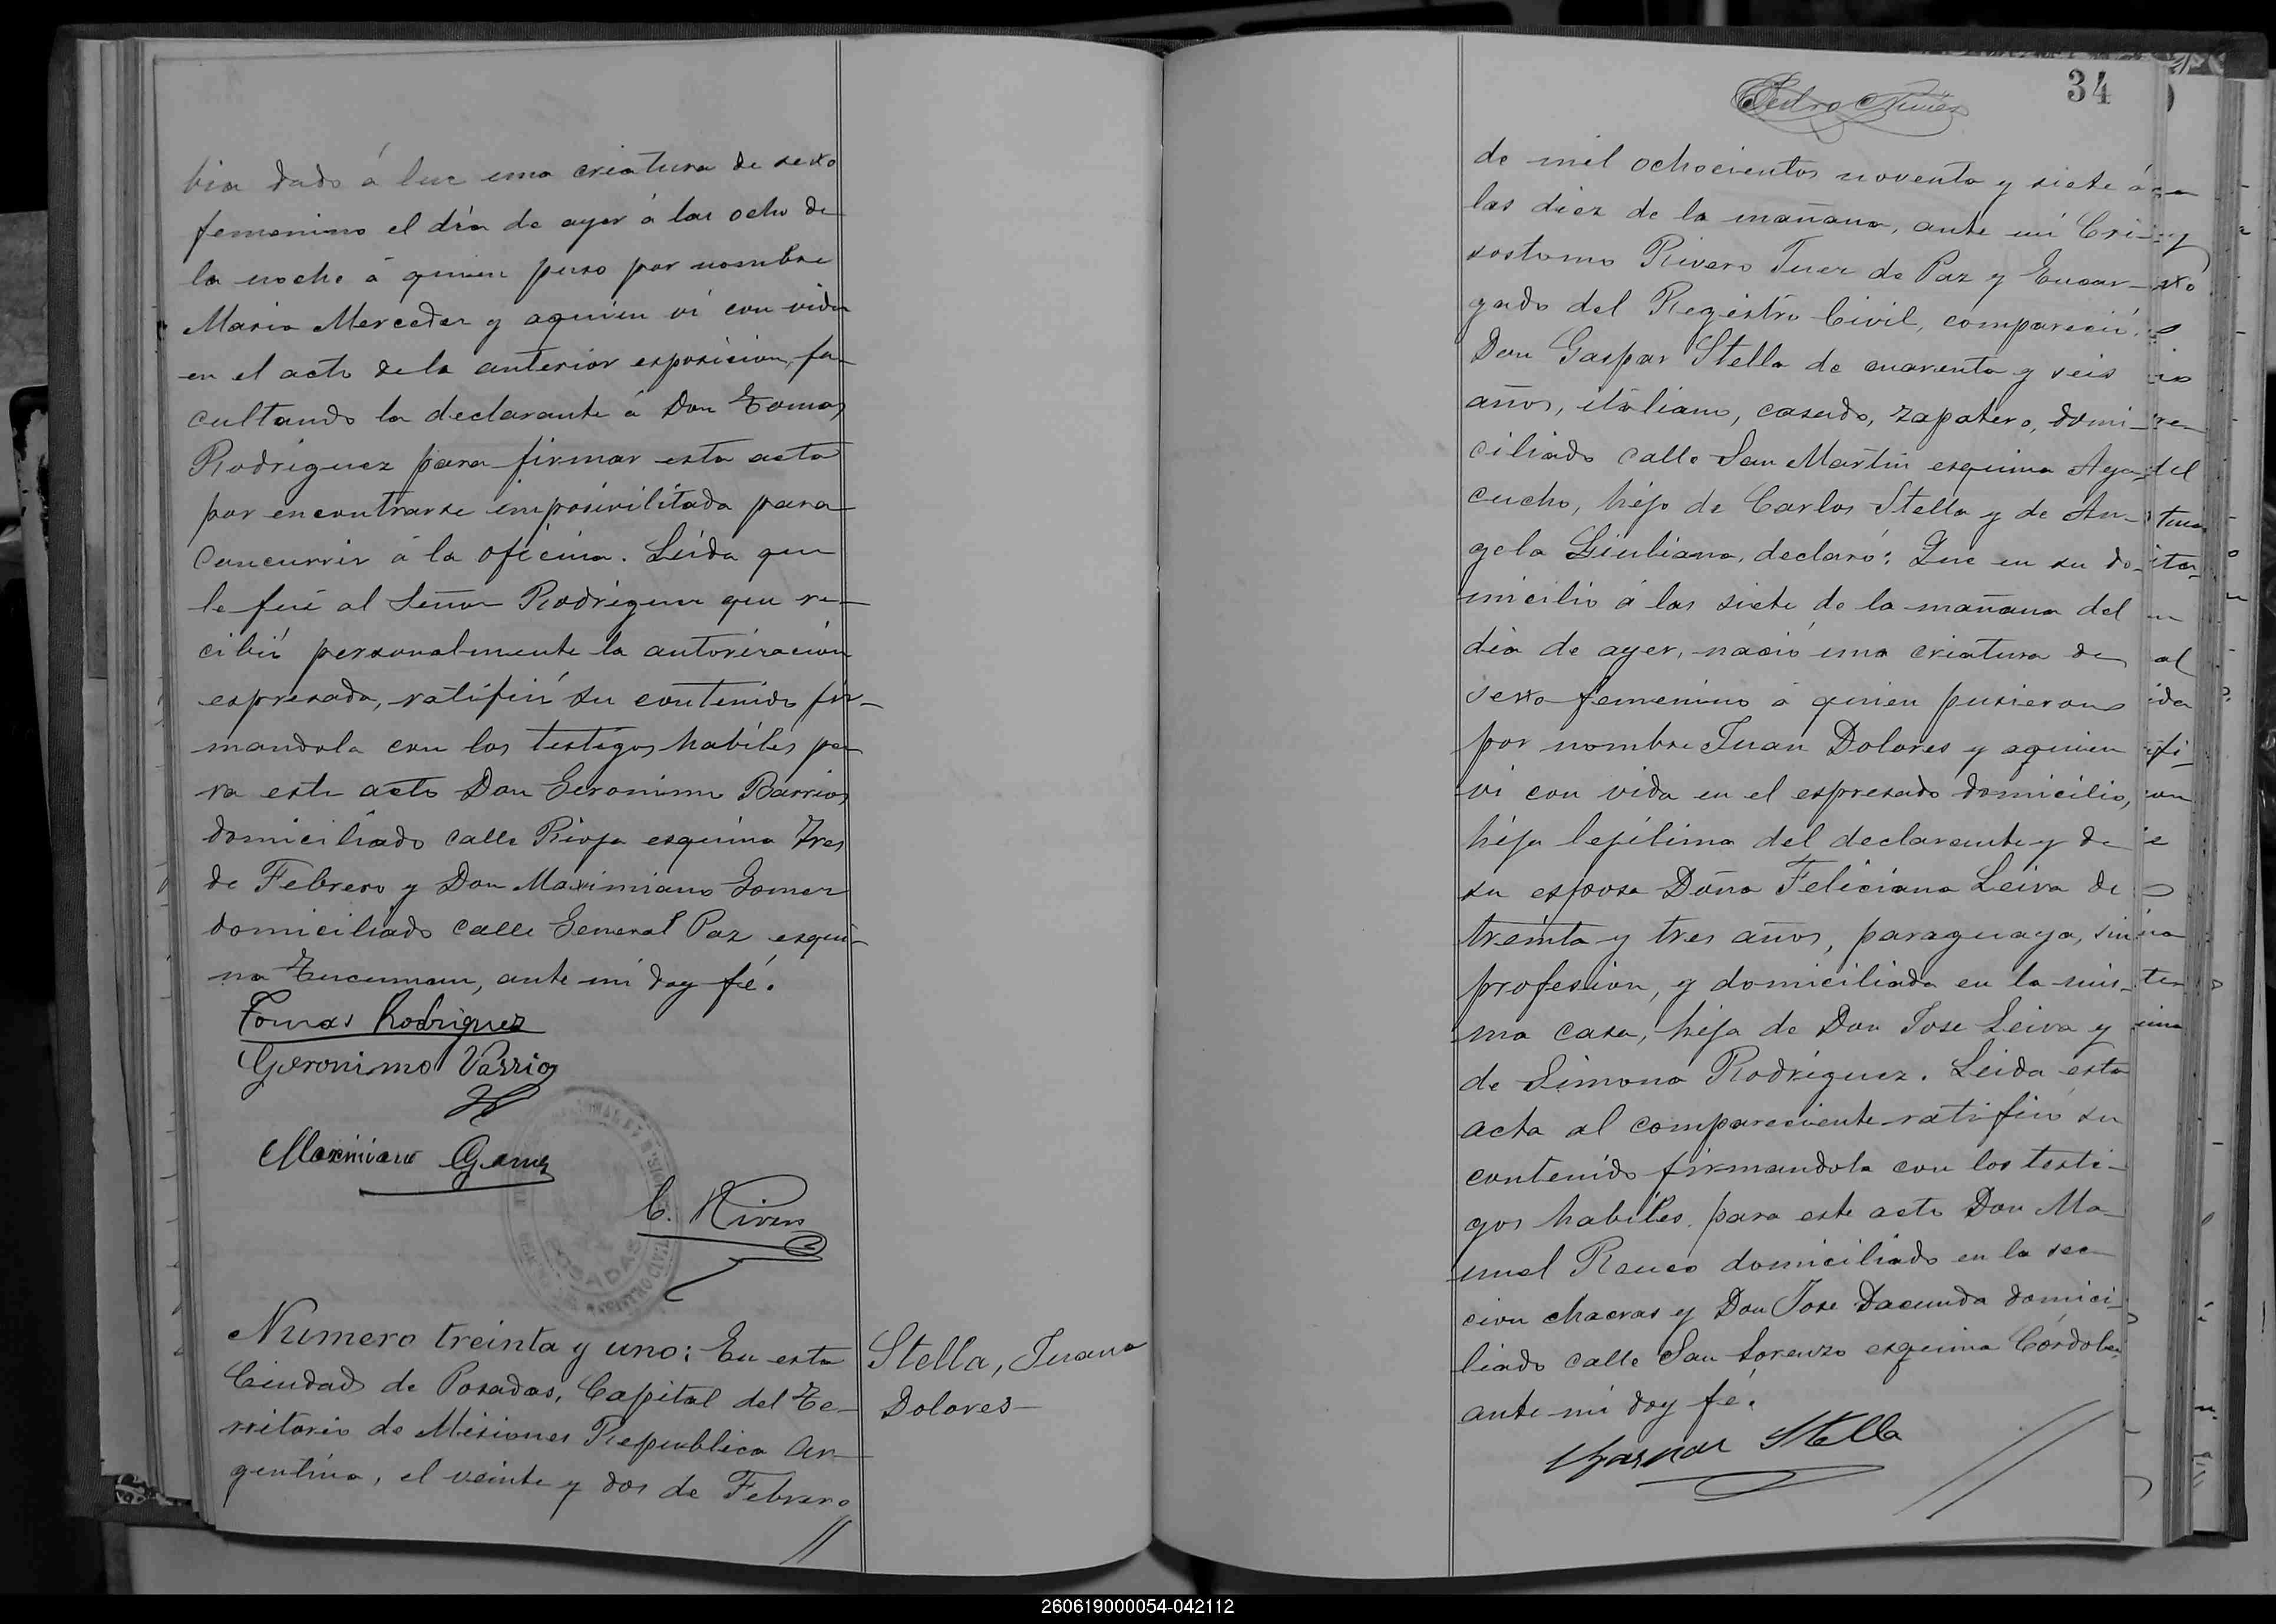 bia dado á luz una criatura de sexo
femenino el día de ayer á las ocho de
la noche á quien puso por nombre
Maria Mercedes y aquien ví con vida
en el acto de la anterior esposicion, fa-
cultando la declarante á Don Tomas
Rodriguez para firmar esta acta
por encontrarse imposivilitada para
concurrir á la oficina. Leida que
le fué al Señor Rodriguez que re-
cibió personalmente la autorizacion
espresada, ratificó su contenido fir-
mandola con los testigos habiles pa-
ra este acto Don Geronimo Barrios
domiciliado calle Rioja esquina Tres
de Febrero y Don Maximiano Gomez
domiciliado calle General Paz esqui-
na Tucuman, ante mí doy fé.
Tomas Rodriguez
Geronimo Varrios
Maximiano Gomez
C. Rivero
POSADAS
REGISTRO CIVIL
Numero treinta y uno: En esta
Ciudad de Posadas, Capital del Te-
rritorio de Misiones Republica Ar-
gentina, el veinte y dos de Febrero
Stella, Juana
Dolores
34
Pedro Nuñez
de mil ochocientos noventa y siete á
las diez de la mañana, ante mí Cri-
sostomo Rivero Juez de Paz y Encar-
gado del Registro Civil, compareció
Don Gaspar Stella de cuarenta y seis
años, italiano, casado, zapatero, domi-
ciliado calle San Martin esquina Aya-
cucho, hijo de Carlos Stella y de An-
gela Giuliana, declaró: Que en su do-
micilio á las siete de la mañana del
día de ayer, nació una criatura de
sexo femenino á quien pusieron
por nombre Juan Dolores y aquien
vi con vida en el espresado domicilio,
hija lejitima del declarante y de
su esposa Doña Feliciana Leiva de
treinta y tres años, paraguaya, sin
profesion, y domiciliada en la mis-
ma casa, hija de Don Jose Leiva y
de Simona Rodriguez. Leida esta
acta al compareciente ratificó su
contenido firmandola con los testi-
gos habiles para este acto Don Ma-
nuel domiciliado en la sec-
cion chacras y Don Jose Dacunda domici-
liado calle San Lorenzo esquina Córdoba
ante mí doy fé.
Gaspar Stella
260619000054-042112